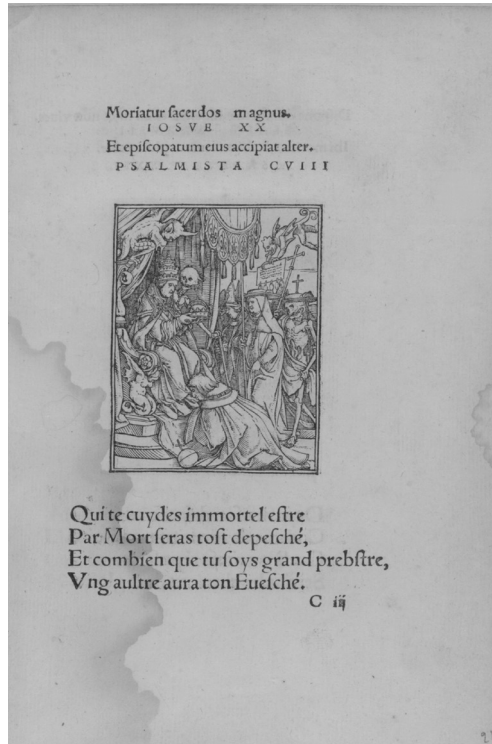 Moriatur ſacerdos magnus.
IOSVE XX
Et epiſcopatum eius accipiat alter.
PSALMISTA CVIII
Qui te cuydes immortel eſtre
Par Mort ſeras toſt depeſché,
Et combien que tu ſoys grand prebſtre,
Vng aultre aura ton Eueſché.
C iij